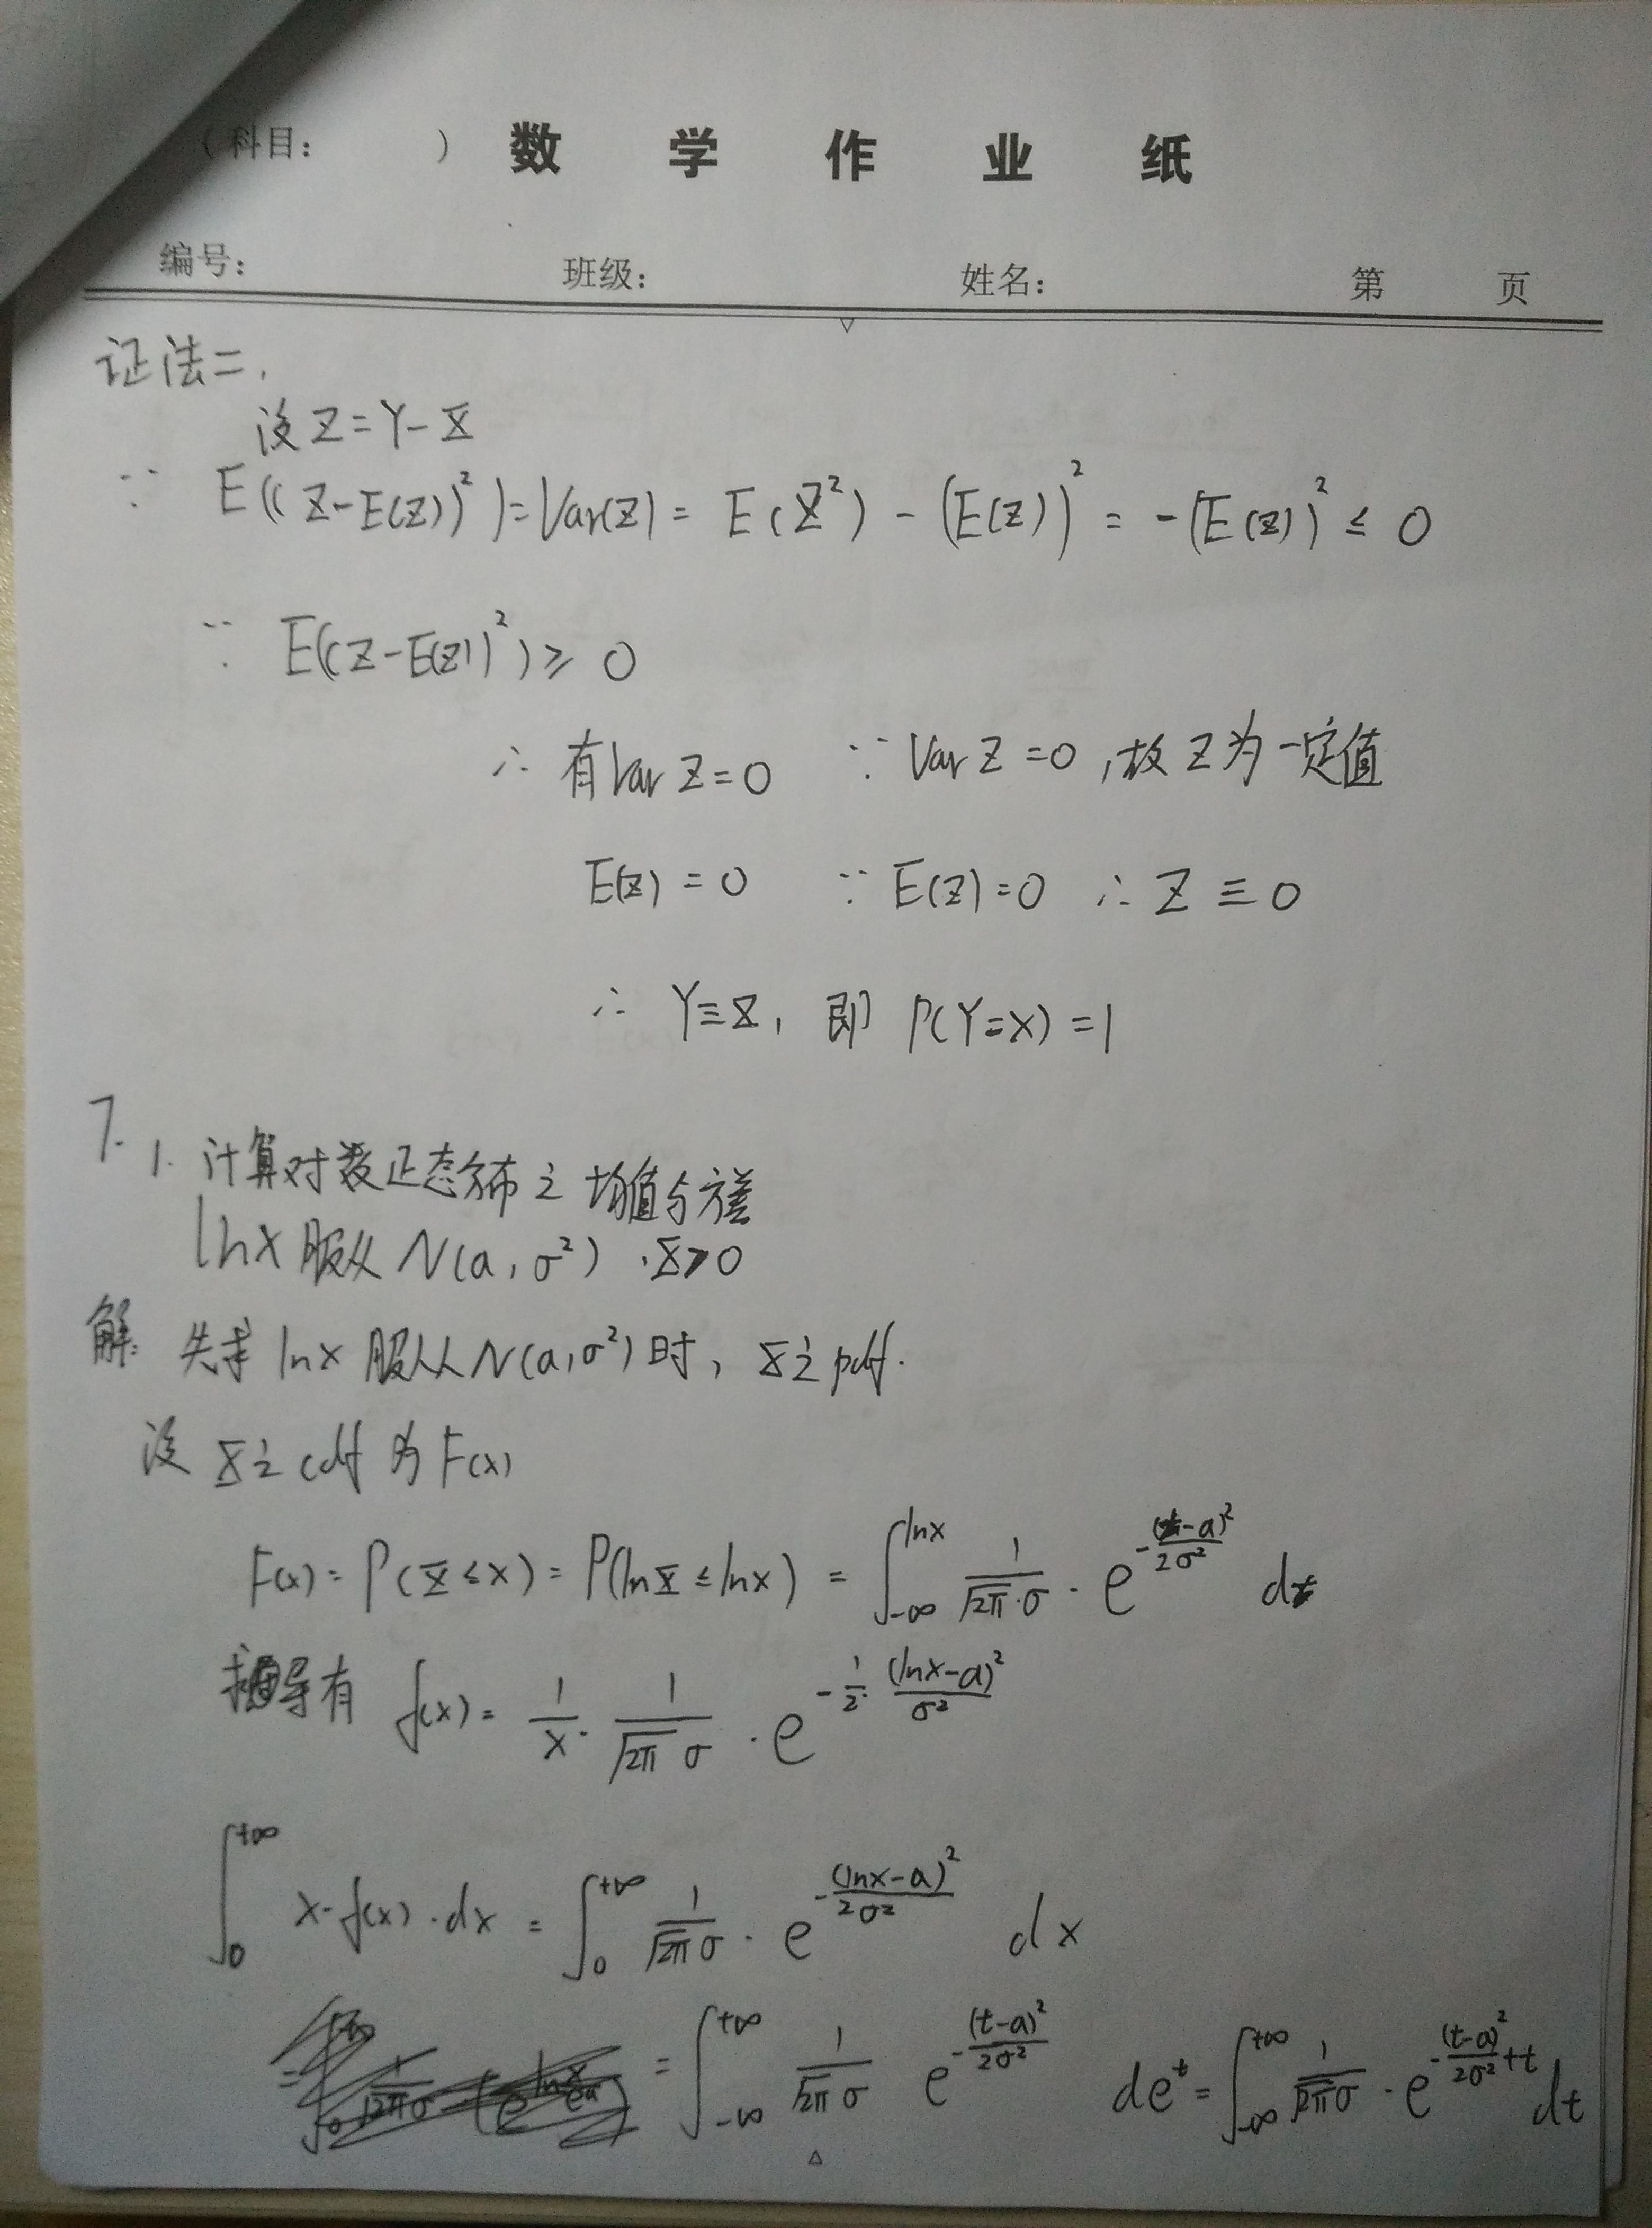 (科目: ) 数 学 作 业 纸
编号: 班级: 姓名: 第 页
证法二.
设 Z=Y-X
∵ E((Z-E(Z))²)=Var(Z)= E(Z²) - (E(Z))² = -(E(Z))² ≤ 0
∵ E((Z-E(Z))²)≥ 0
∴ 有Var Z=0 ∵ Var Z=0,故 Z 为一定值
E(Z)=0 ∵ E(Z)=0 ∴ Z ≡ 0
∴ Y≡X, 即 P(Y=X)=1
7. 1. 计算对数正态分布之均值与方差
lnX 服从 N(a, σ²) , X>0
解. 先求 lnX 服从 N(a,σ²)时, X之pdf.
设 X之cdf 为 F(x)
F(x)= P(X≤x)= P(lnX≤lnx) = ∫_{-∞}^{lnx} 1/(√2π·σ) · e^{-(t-a)²/2σ²} dt
求导有 f(x)= 1/x · 1/(√2π σ) · e^{-1/2·(lnx-a)²/σ²}
∫_0^{+∞} x·f(x)·dx = ∫_0^{+∞} 1/(√2π σ) · e^{-(lnx-a)²/2σ²} dx
= ∫_{-∞}^{+∞} 1/(√2π σ) e^{-(t-a)²/2σ²} de^t = ∫_{-∞}^{+∞} 1/(√2π σ) · e^{-(t-a)²/2σ²+t} dt